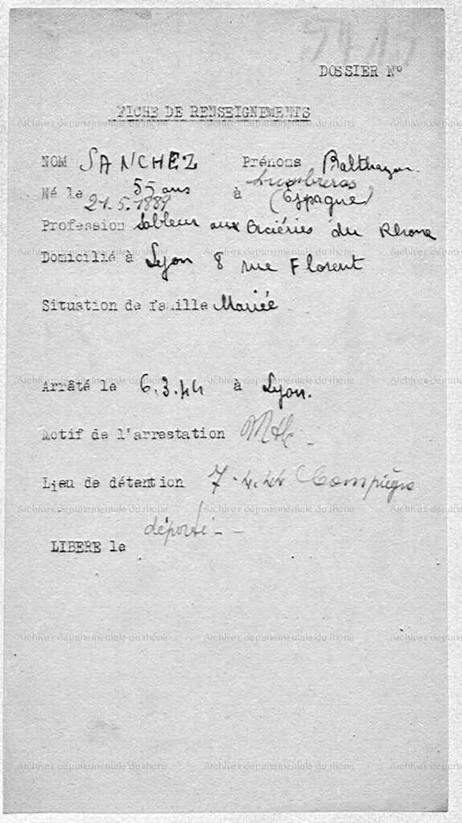 DOSSIER N°
FICHE DE RENSEIGNEMENTS
NOM SANCHEZ Prénoms Balthazar.
55 ans Lumbreras
Né le 21.5.1889 à (Espagne)
Profession Sableur aux Aciéries du Rhone
Domicilié à Lyon 8 rue Florent
Situation de famille Mariée
Arrêté le 6.3.44 à Lyon.
Motif de l'arrestation
Lieu de détention 7.4.44 Compiègne
déporté - -
LIBERE le
Archives départementale du rhone